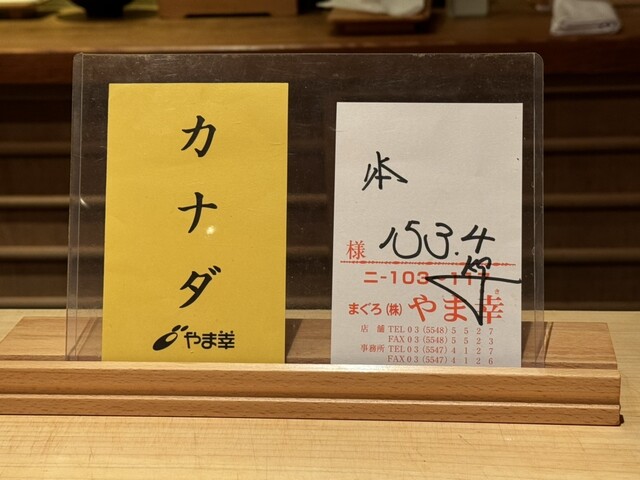 カナダ
やま幸
153.4
様
ニ-103
まぐろ(株)やま幸
店 舗 TEL03(5548)5527
FAX03(5548)5523
事務所 TEL03(5547)4127
FAX03(5547)4126